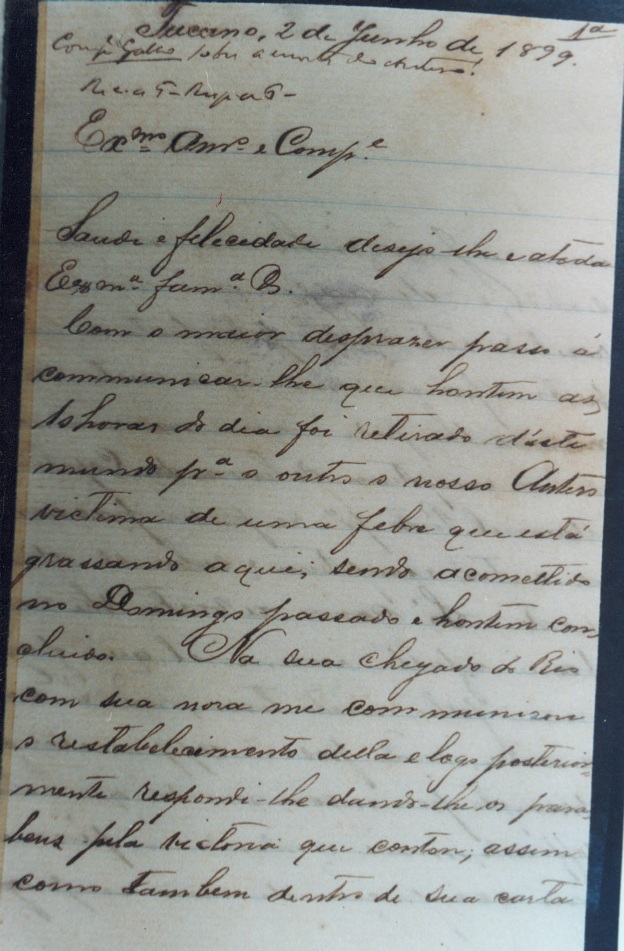 1ª
Tucano, 2 de Junho de 1899.
Compe Gallo sobre a morte do Antero!
R
Exmo Amo e Compe
Saude e felecidade desejo-lhe e a toda
Exma famª D.
Com o maior desprazer passo á
communicar-lhe que hontem as
horas do dia foi retirado d'este
mundo pª o outro o nosso Antero
victima de uma febre que está
grassando aqui, sendo acomettido
no Domingo passado e hontem con-
cluido. Na sua chegado do Rio
com sua nora me communicou
o restabelecimento della e logo posterior-
mente respondi-lhe dando-lhe os para-
bens pela victoria que contou, assim
como tambem dentro de sua carta